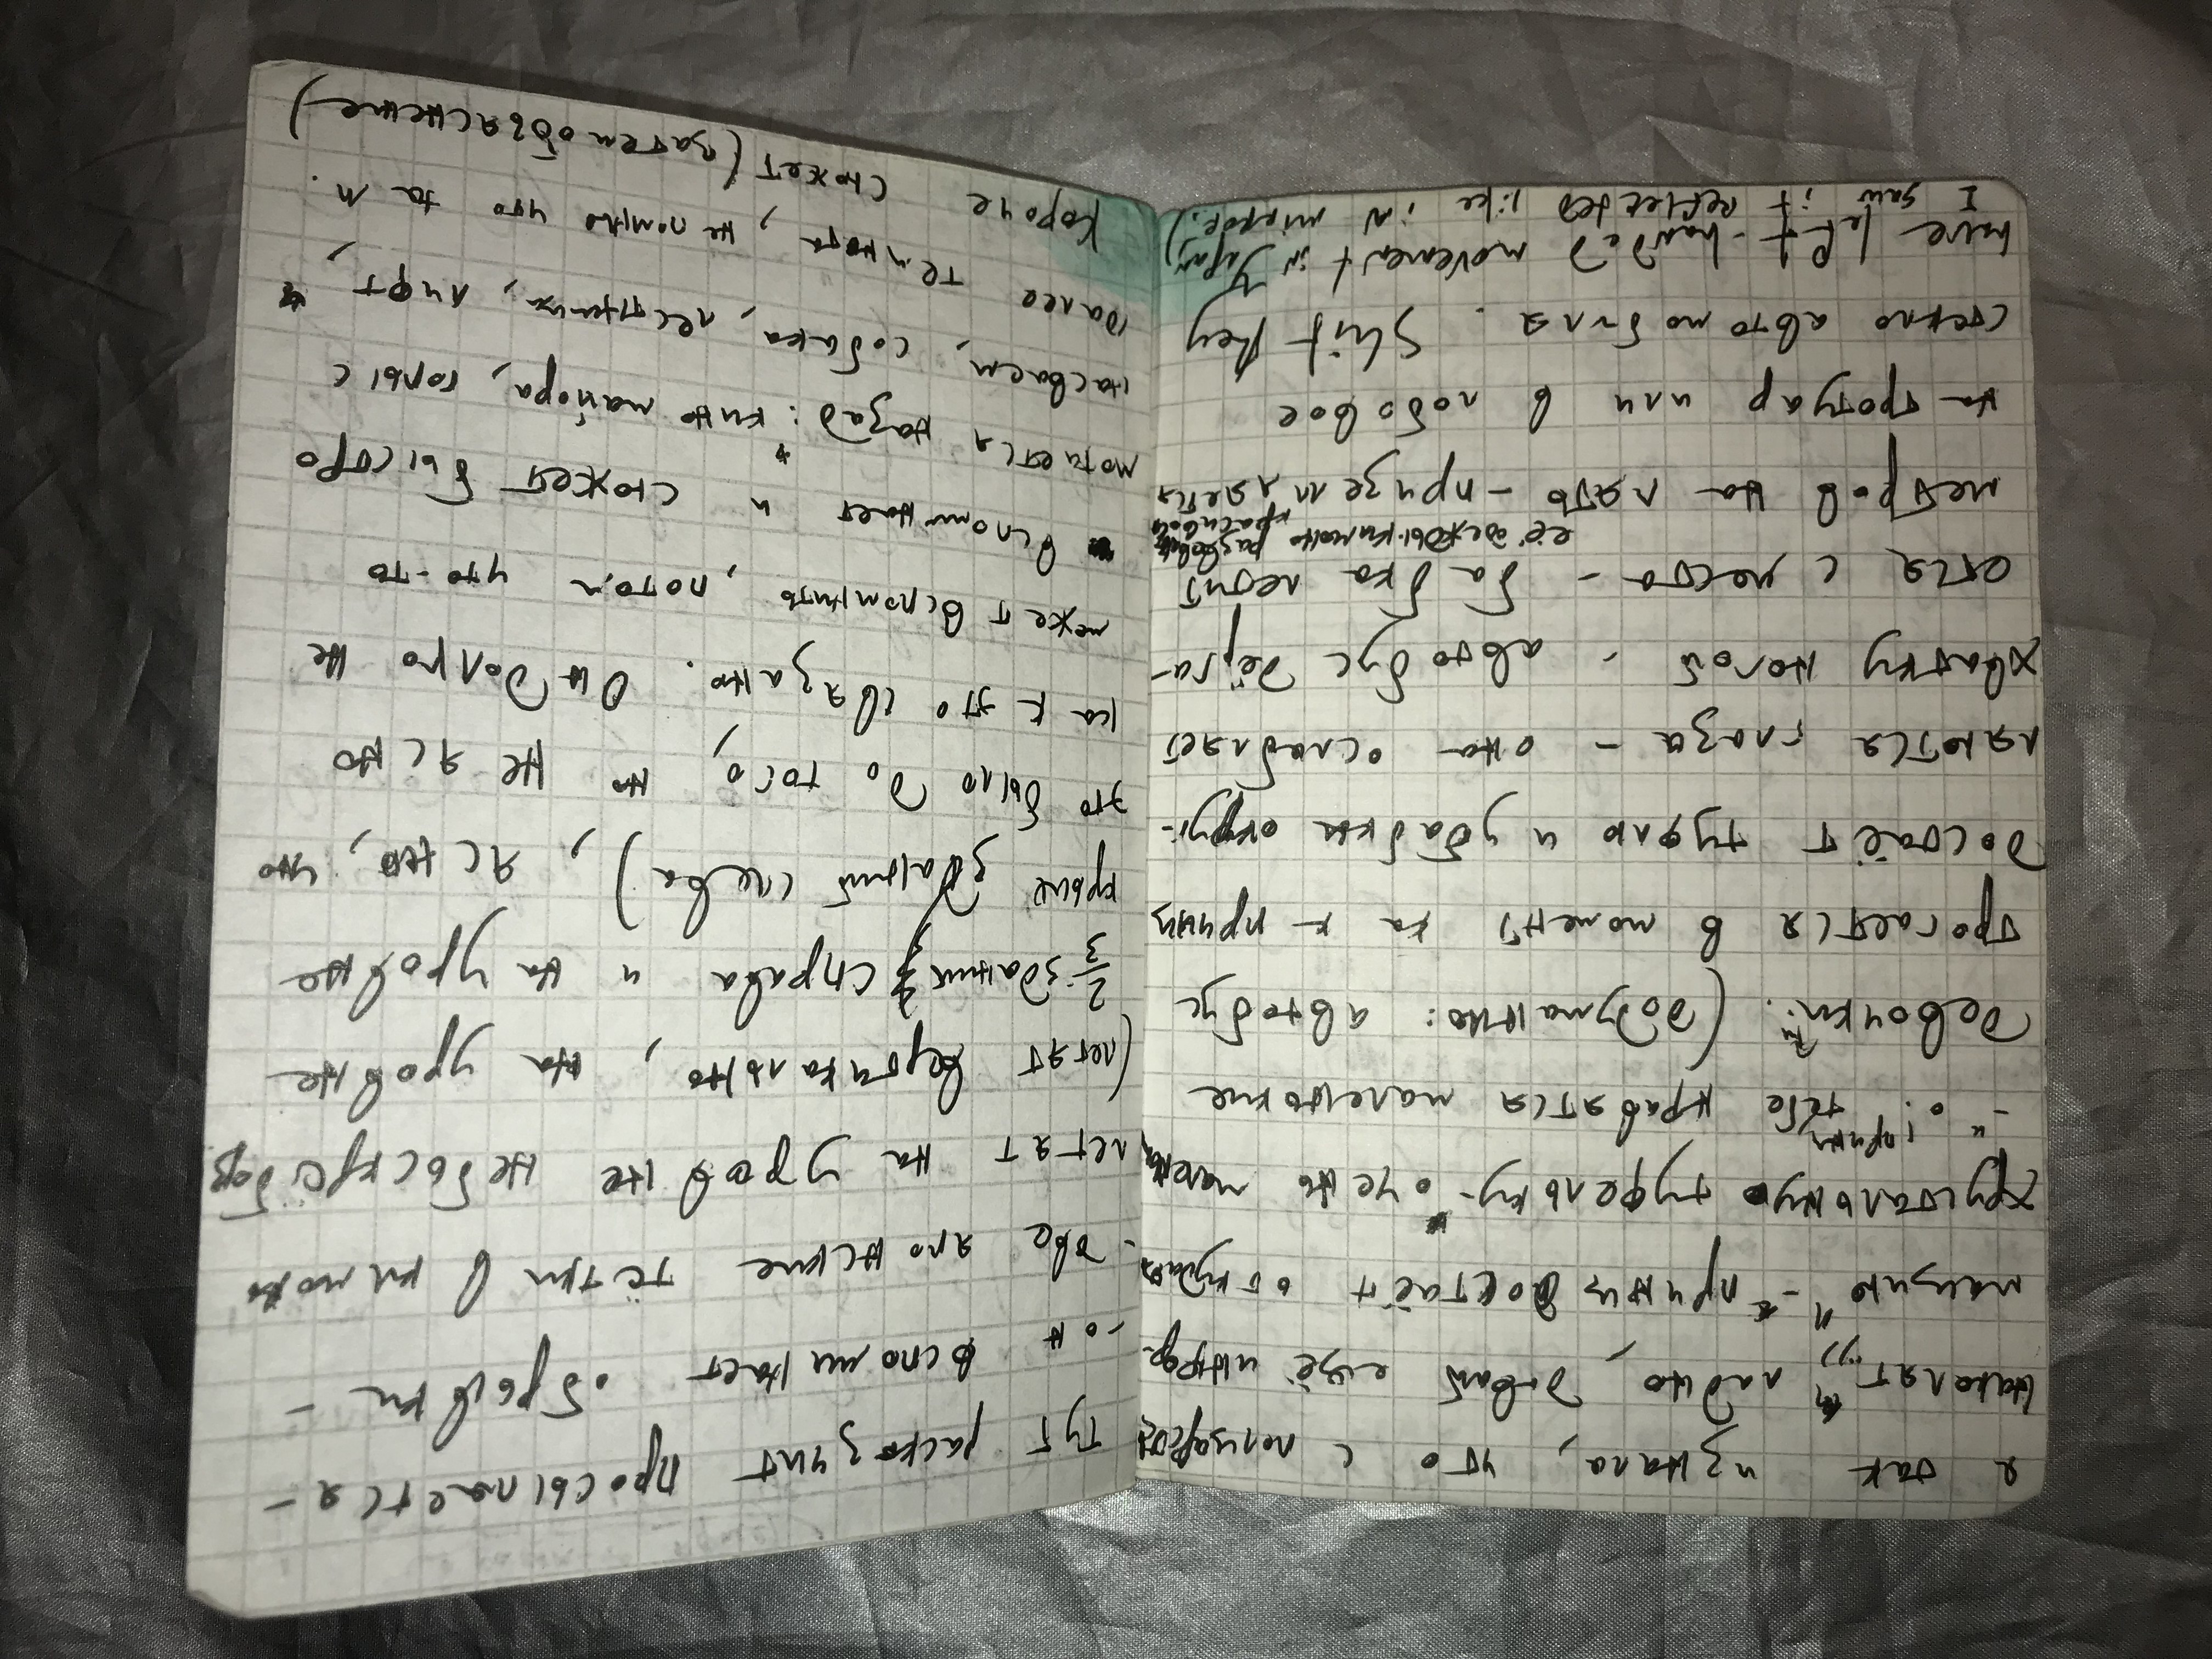 я так и знала, что с полцарством
наколят", "ладно, давай ещё инфор-
мацию" - принц достаёт откуда-то
хрустальную туфельку - "очень маленькая"
- "о! принц, тебе нравятся маленькие
девочки". (додумано: автобус
трогается в момент как принц
достаёт туфлю и у бабки округ-
ляются глаза - она ослабляет
хватку ногой - автобус дёрга-
ется с места - бабка летит
её одежды-кимоно
красиво
метров на пять - приземляется
на тротуар или в лобовое
стекло автомобиля. Shit they
have left-handed movement in Japan,
I saw it reflected like in mirror.)
тут расказчит просыпается -
- он вспоминает обрывки -
- две японские тётки в кимоно
летят на уровне небоскрёбов
(летят вертикально, на уровне
2/3 зданий справа и на уровне
крыш зданий слева), ясно, что
это было до того, но не ясно
как это связано. Он долго не
может вспомнить, потом что-то
вспоминает и сюжет быстро
мотается назад: кино майора, голый с
насваем, собака, лестница, лифт,
далее темнота, не помню что там.
Короче сюжет (затем объяснение)